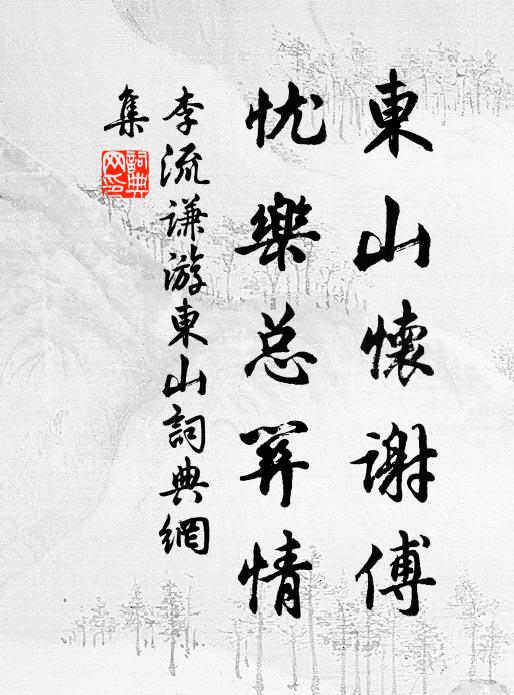 東山懷謝傅
忧樂总关情
李流谦游東山詞典網
集
詞典
网印